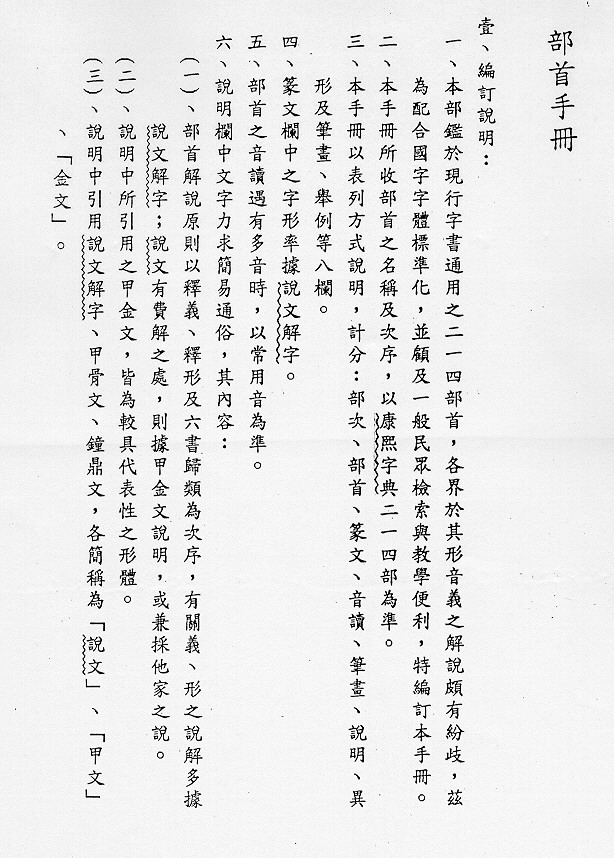 部首手冊
壹、編訂說明：
一、本部鑑於現行字書通用之二一四部首，各界於其形音義之解說頗有紛歧，茲
為配合國字字體標準化，並顧及一般民眾檢索與教學便利，特編訂本手冊。
二、本手冊所收部首之名稱及次序，以康熙字典二一四部為準。
三、本手冊以表列方式說明，計分：部次、部首、篆文、音讀、筆畫、說明、異
形及筆畫、舉例等八欄。
四、篆文欄中之字形率據說文解字。
五、部首之音讀遇有多音時，以常用音為準。
六、說明欄中文字力求簡易通俗，其內容：
(一)、部首解說原則以釋義、釋形及六書歸類為次序，有關義、形之說解多據
說文解字；說文有費解之處，則據甲金文說明，或兼採他家之說。
(二)、說明中所引用之甲金文，皆為較具代表性之形體。
(三)、說明中引用說文解字、甲骨文、鐘鼎文，各簡稱為「說文」、「甲文」
、「金文」。